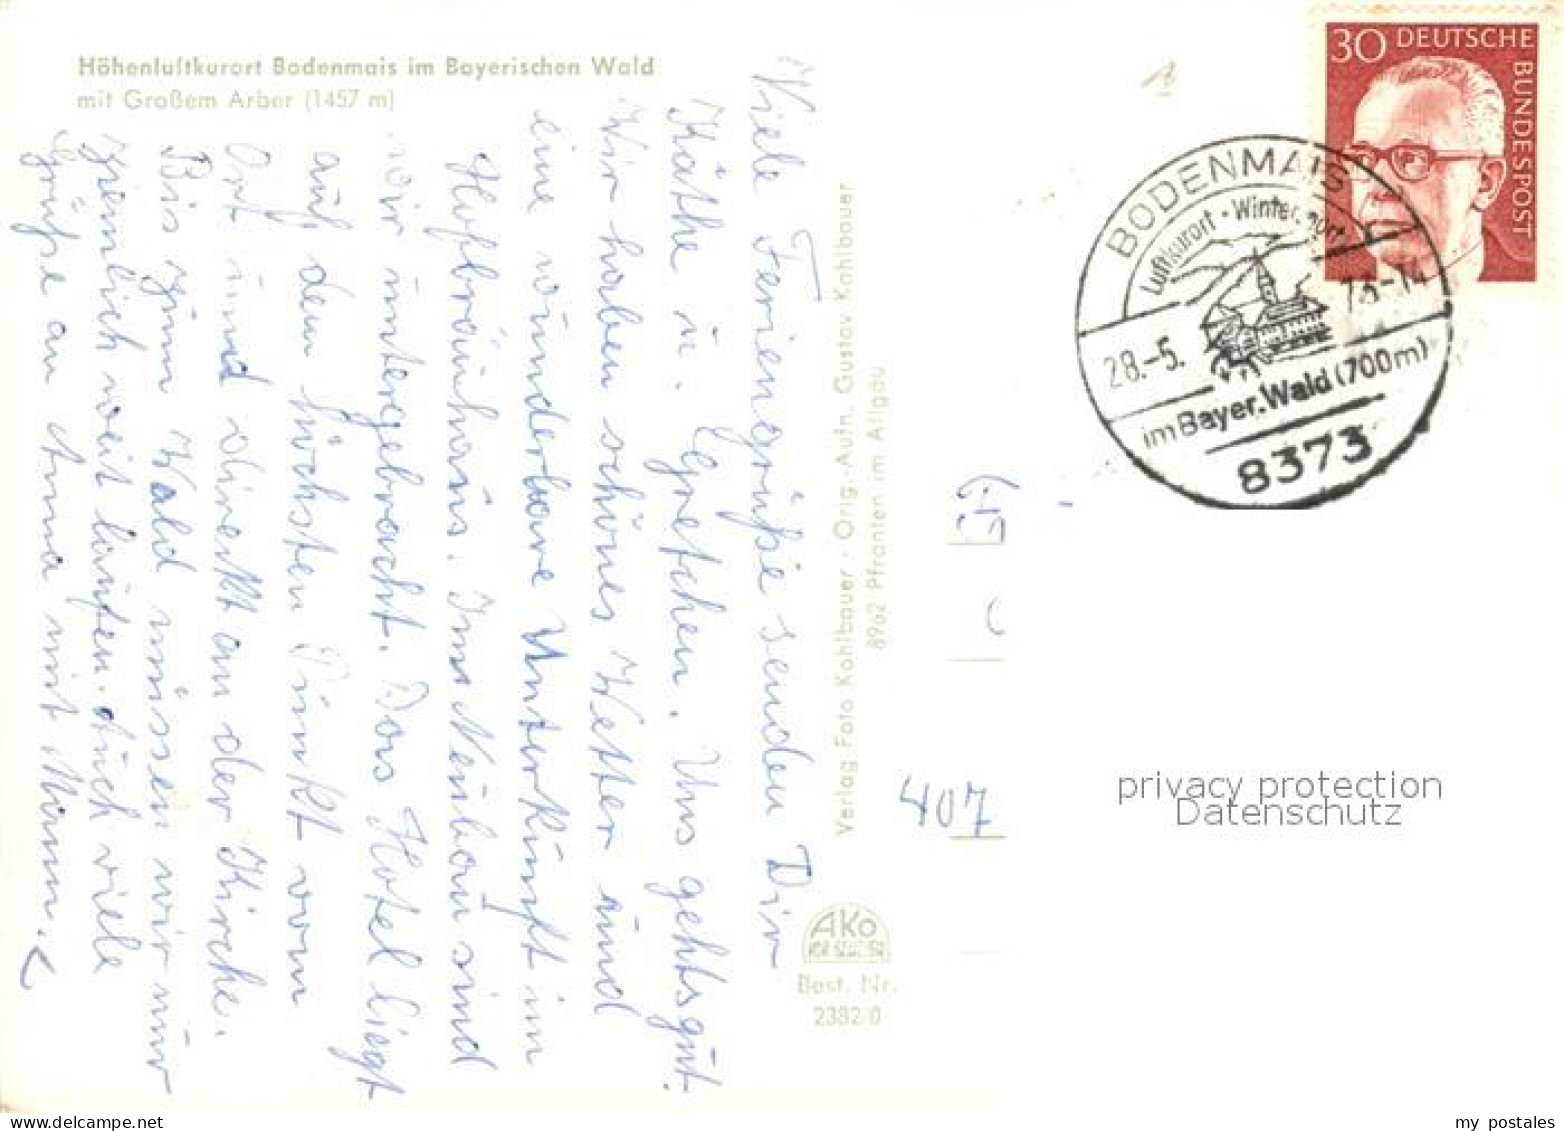 Höhenluftkurort Bodenmais im Bayerischen Wald
mit Großem Arber (1457 m)
Viele Feriengrüße senden Dir
Käthe u. Gretchen. Uns gehts gut.
Wir haben schönes Wetter und
eine wunderbare Unterkunft im
Hofbräuhaus. Im Neubau sind
wir untergebracht. Das Hotel liegt
auf dem höchsten Punkt vom
Ort und direkt an der Kirche.
Bis zum Wald müssen wir nur
ziemlich weit laufen. Auch viele
Grüße an Anna mit Mann.
Verlag Foto Kohlbauer · Orig.-Aufn. Gustav Kohlbauer
8962 Pfronten im Allgäu
AKO
Best. Nr.
2382/0
407
30 DEUTSCHE
BUNDESPOST
BODENMAIS
Luftkurort · Wintersport
28.-5.
im Bayer. Wald (700m)
8373
privacy protection
Datenschutz
my postales